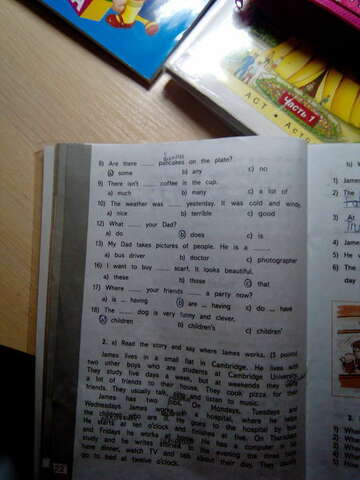 АСТ · АСТ
Часть 1
8) Are there ...... pancakes on the plate?
a) some b) any c) no
9) There isn't ...... coffee in the cup.
a) much b) many c) a lot of
10) The weather was ...... yesterday. It was cold and windy
a) nice b) terrible c) good
12) What ...... your Dad?
a) do b) does c) is
13) My Dad takes pictures of people. He is a ......
a) bus driver b) doctor c) photographer
16) I want to buy ...... scarf. It looks beautiful.
a) these b) those c) that
17) Where ...... your friends ...... a party now?
a) is ... having b) are ... having c) do ... have
18) The ...... dog is very funny and clever.
a) children b) children's c) children'
2. a) Read the story and say where James works. (5 points
James lives in a small flat in Cambridge. He lives with
two other boys who are students at Cambridge University
They study five days a week, but at weekends they
a lot of friends to their house. They cook pizza for their
friends. They usually talk, and listen to music.
James has two jobs. On Mondays, Tuesdays and
Wednesdays James works in a hospital, where he helps
the children who are ill. He goes to the hospital by bus
He starts at ten o'clock and finishes at five. On Thursdays
and Fridays he works at home. He has a computer
and he writes stories. In the evening the three boys
have dinner, watch TV and talk about their day. They usually
go to bed at twelve o'clock.
22
1) James
2) The
3) At
4) James
5) He
6) The
day
2.
1.
2.
3.
4.
5.